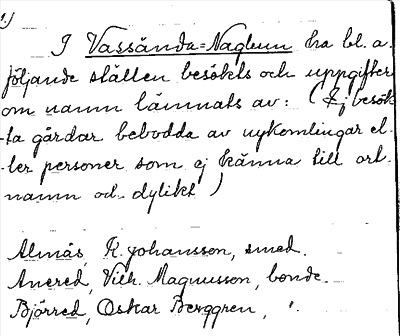 1.)
I Vassända=Naglum ha bl. a.
följande ställen besökts och uppgifter
om namn lämnats av: (Ej besök-
ta gårdar bebodda av nykomlingar el-
ler personer som ej känna till ort-
namn och dylikt)
Almås, K. Johansson, smed.
Anered, Vilh. Magnusson, bonde.
Björred, Oskar Berggren, ".